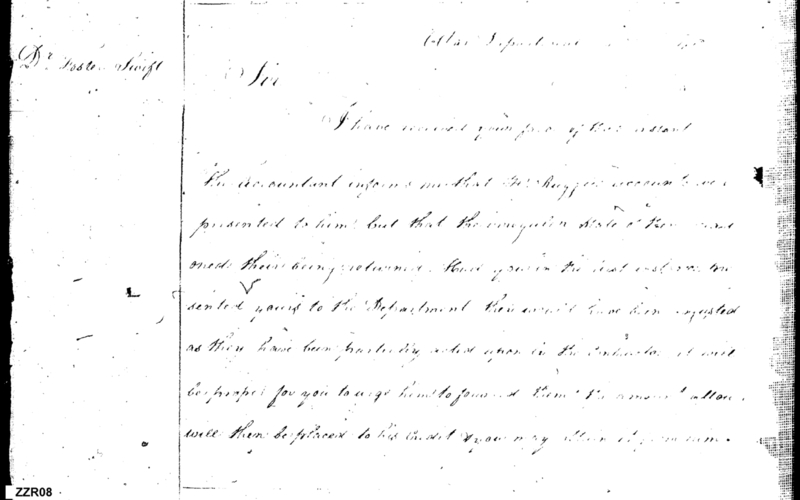 War Department
Dr. Foster Swift
Sir
I have received your favor of the instant
The Accountant informs me that Mr. Ruggles accounts were
presented to him but that the irregular State of them
their being returned. Had you in the first instance pre
sented yours to the Department they would have been adjusted
as they have been partially acted upon by the Contractor it will
be proper for you to urge him to forward them. The amount
will then be placed to his Credit & you may obtain it from him.
ZZR08